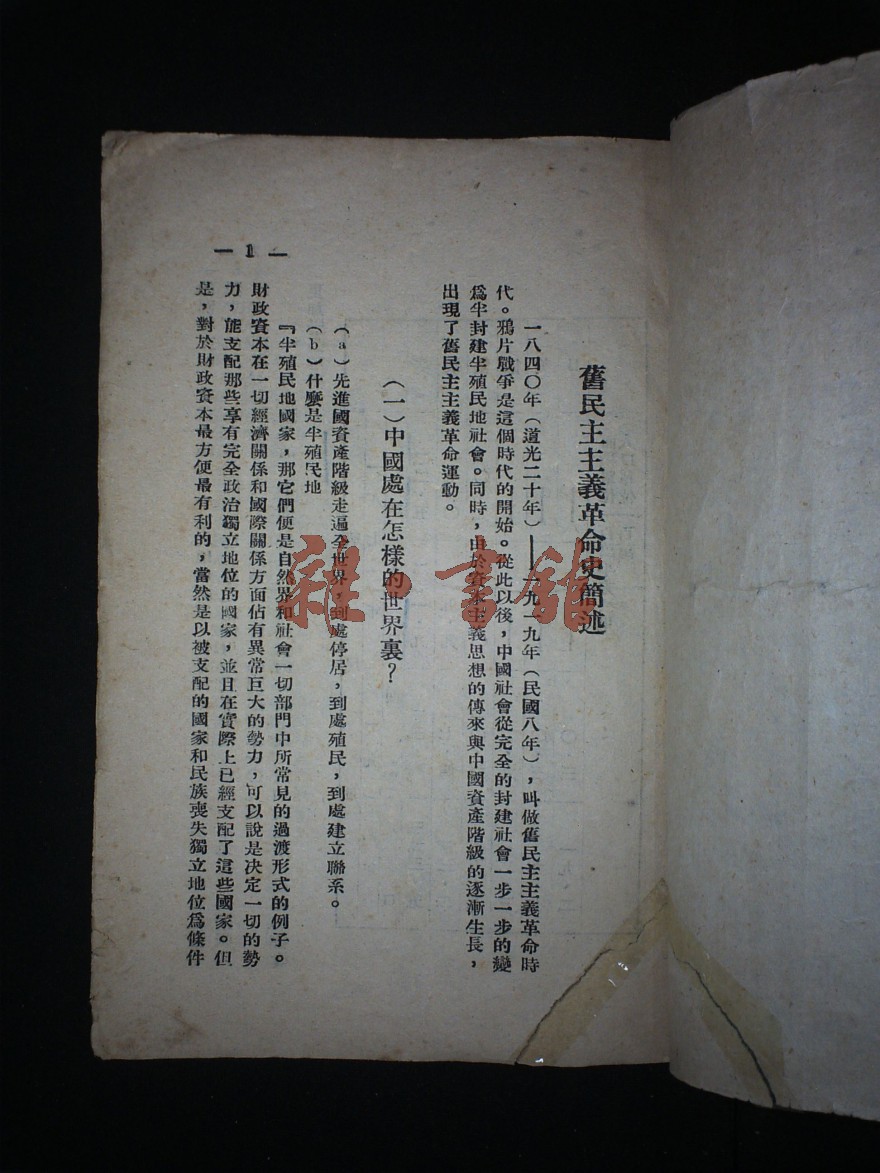 舊民主主義革命史簡述
一八四〇年(道光二十年)——一九一九年(民國八年),叫做舊民主主義革命時
代。鴉片戰爭是這個時代的開始。從此以後,中國社會從完全的封建社會一步一步的變
爲半封建半殖民地社會。同時,由於資本主義思想的傳來與中國資產階級的逐漸生長,
出現了舊民主主義革命運動。
(一)中國處在怎樣的世界裏?
(a)先進國資產階級走遍全世界,到處停居,到處殖民,到處建立聯系。
(b)什麼是半殖民地
『半殖民地國家,那它們便是自然界和社會一切部門中所常見的過渡形式的例子。
財政資本在一切經濟關係和國際關係方面佔有異常巨大的勢力,可以說是决定一切的勢
力,能支配那些享有完全政治獨立地位的國家,並且在實際上已經支配了這些國家。但
是,對於財政資本最方便最有利的,當然是以被支配的國家和民族喪失獨立地位爲條件
— 1 —
雜·書館